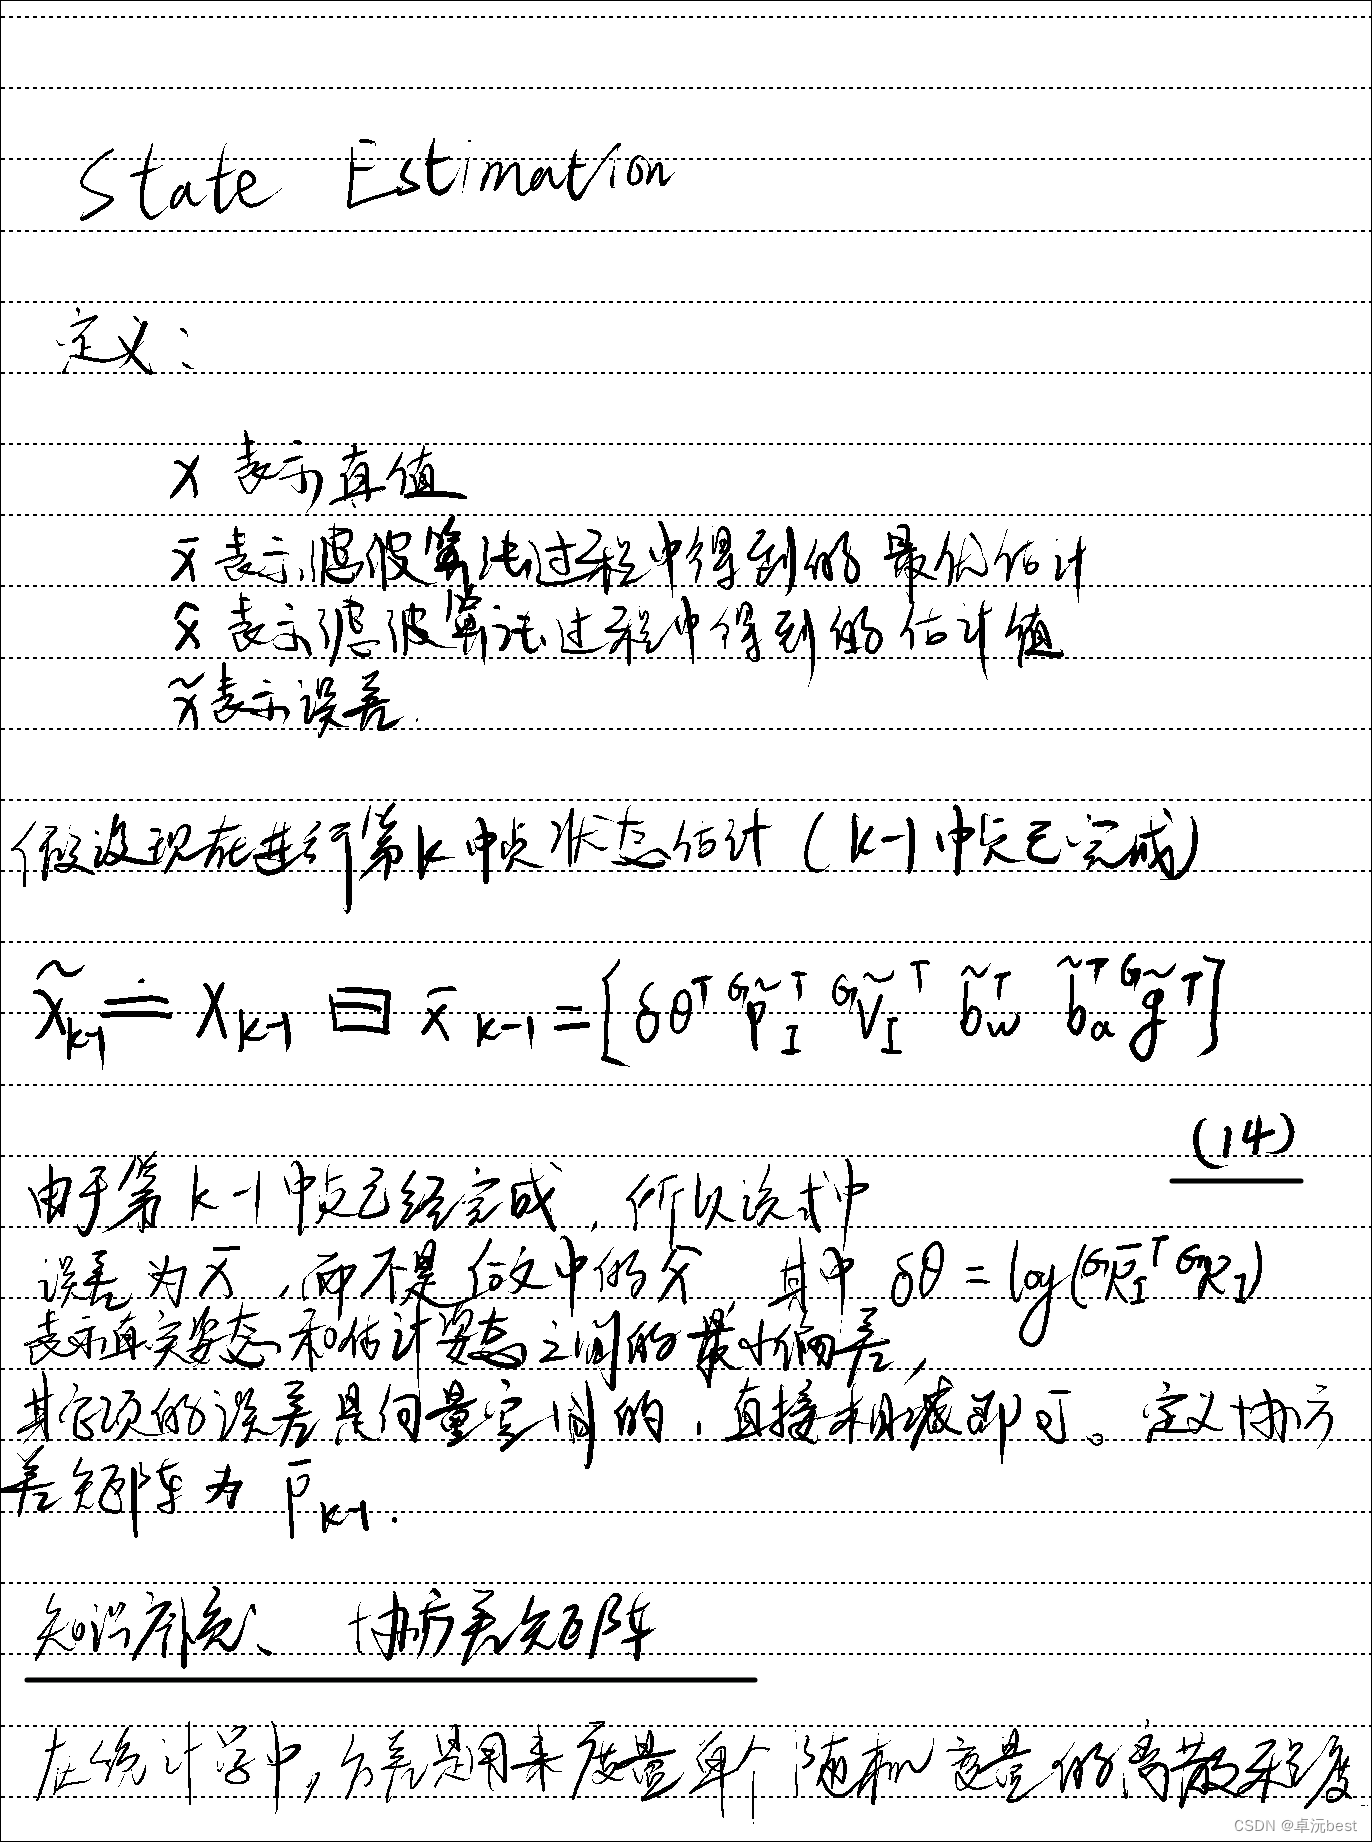 State Estimation
定义：
x 表示真值
x̄ 表示滤波算法过程中得到的最优估计
x̂ 表示滤波算法过程中得到的估计值
x̃ 表示误差.
假设现在进行第k帧状态估计 (k-1帧已完成)
x̃_{k-1} ≐ x_{k-1} ⊟ x̄_{k-1} = [δθ^T ^G p̃_I^T ^G ṽ_I^T b̃_w^T b̃_a^T ^G g̃^T]
(14)
由于第k-1帧已经完成，所以该式中
误差为x̄，而不是 文中的x̂，其中 δθ = log(^G R̄_I^T ^G R_I)
表示真实姿态和估计姿态之间的最小偏差，
其它项的误差是向量空间的，直接相减即可。定义协方
差矩阵为 P̄_{k-1}.
知识补充、协方差矩阵
在统计学中，方差是用来度量单个随机变量的离散程度
CSDN @卓沅best